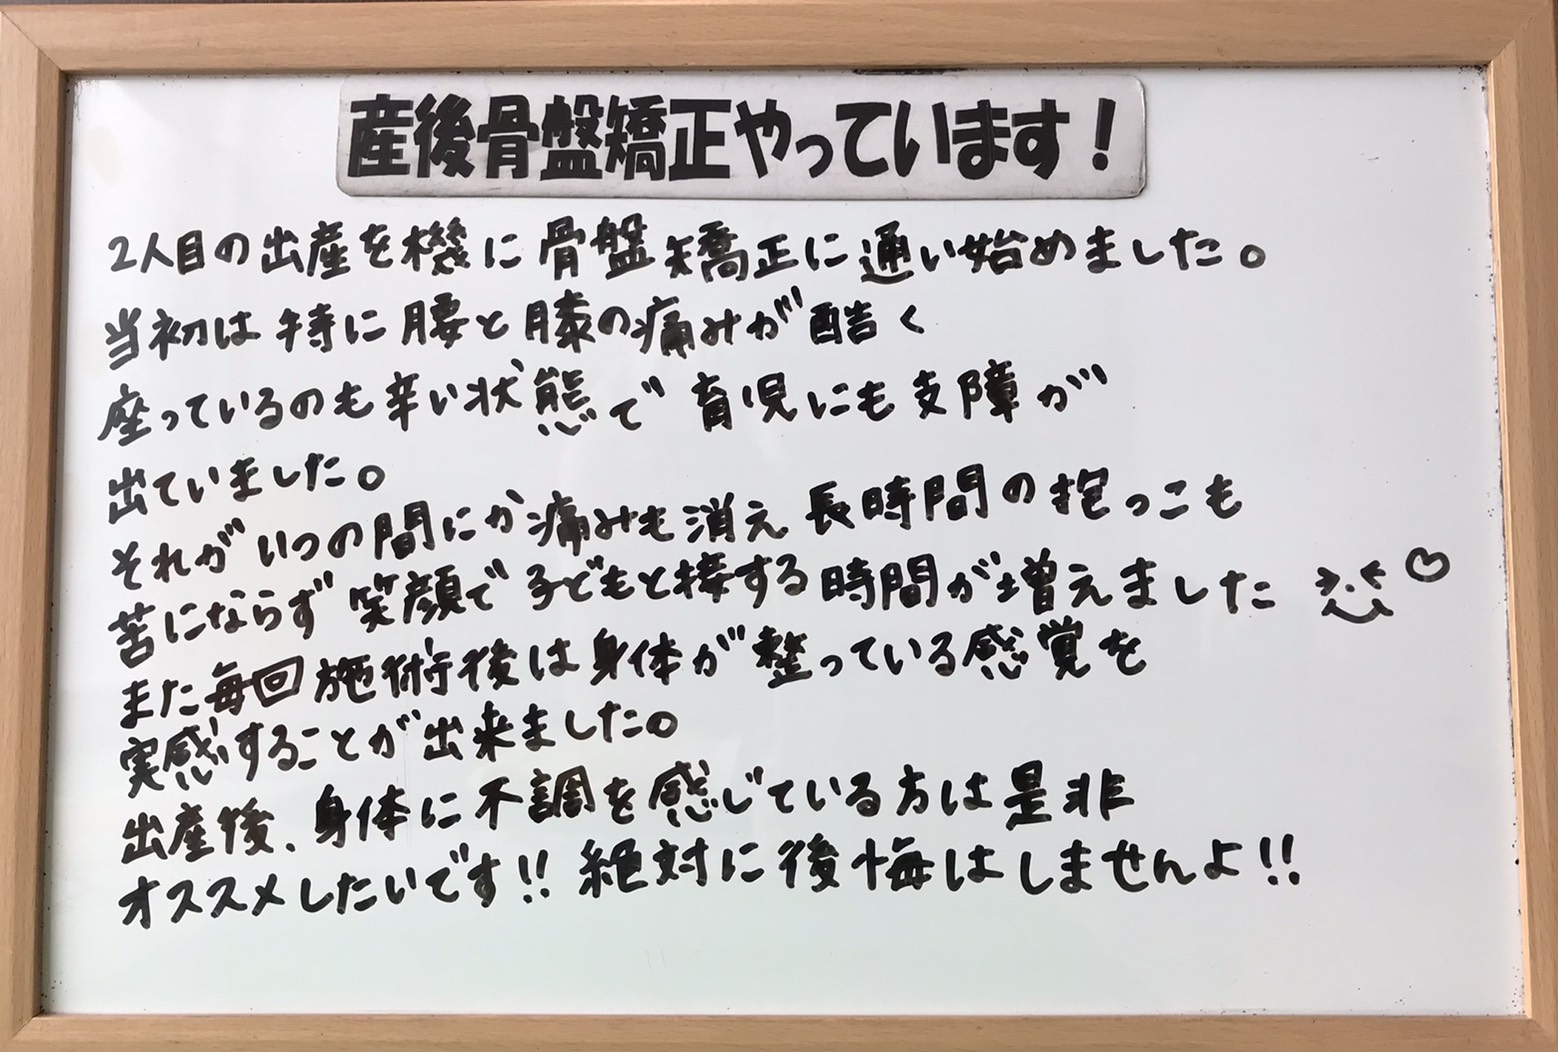 産後骨盤矯正やっています!
2人目の出産を機に骨盤矯正に通い始めました。
当初は特に腰と膝の痛みが酷く
座っているのも辛い状態で育児にも支障が
出ていました。
それがいつの間にか痛みも消え長時間の抱っこも
苦にならず笑顔で子どもと接する時間が増えました
また毎回施術後は身体が整っている感覚を
実感することが出来ました。
出産後、身体に不調を感じている方は是非
オススメしたいです!!絶対に後悔はしませんよ!!